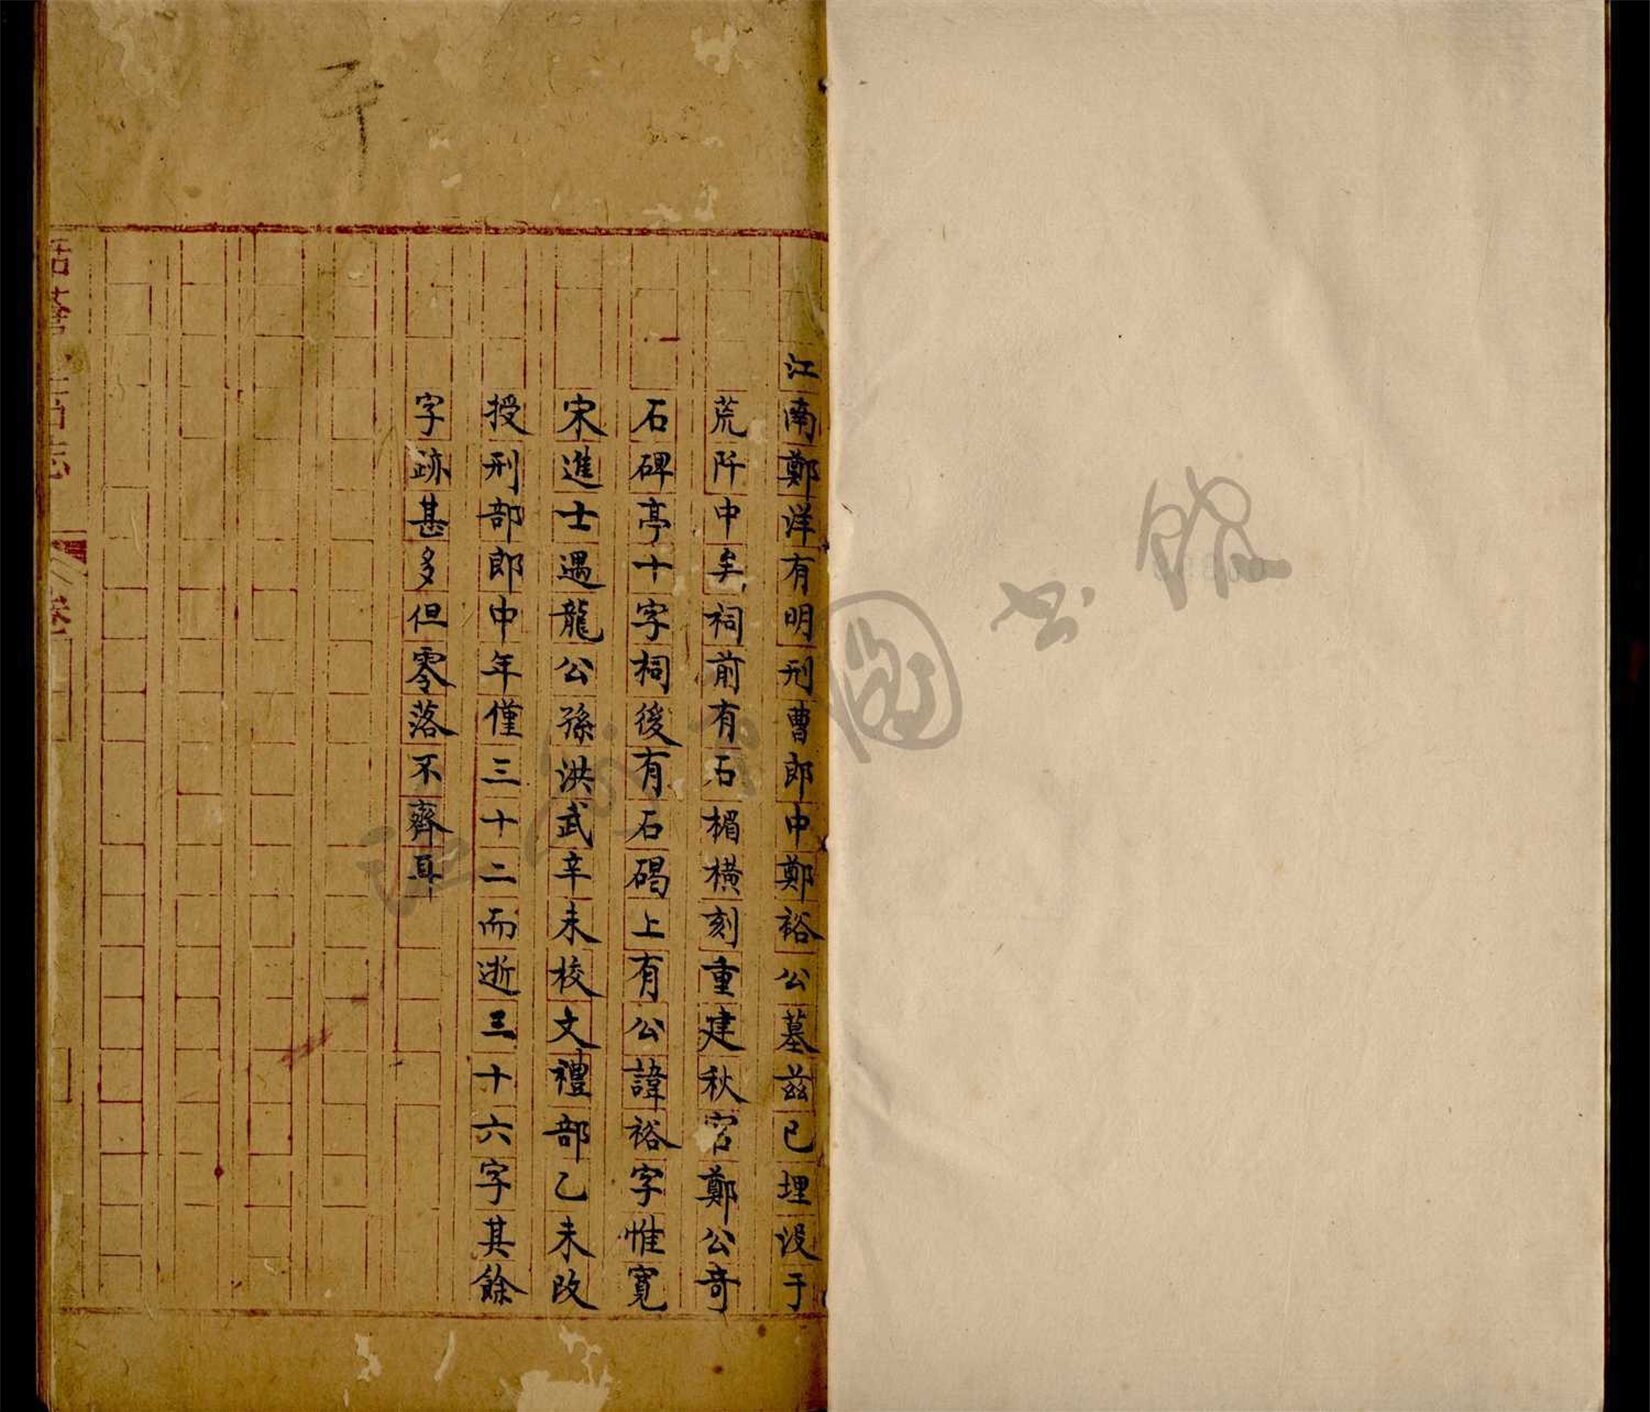 江南鄭洋有明刑曹郎中鄭裕公墓茲已埋没于
荒阡中矣祠前有石楣横刻重建秋官鄭公奇
石碑亭十字祠後有石碣上有公諱裕字惟寛
宋進士遇龍公孫洪武辛未校文禮部乙未改
授刑部郎中年僅三十二而逝三十六字其餘
字跡甚多但零落不齊耳